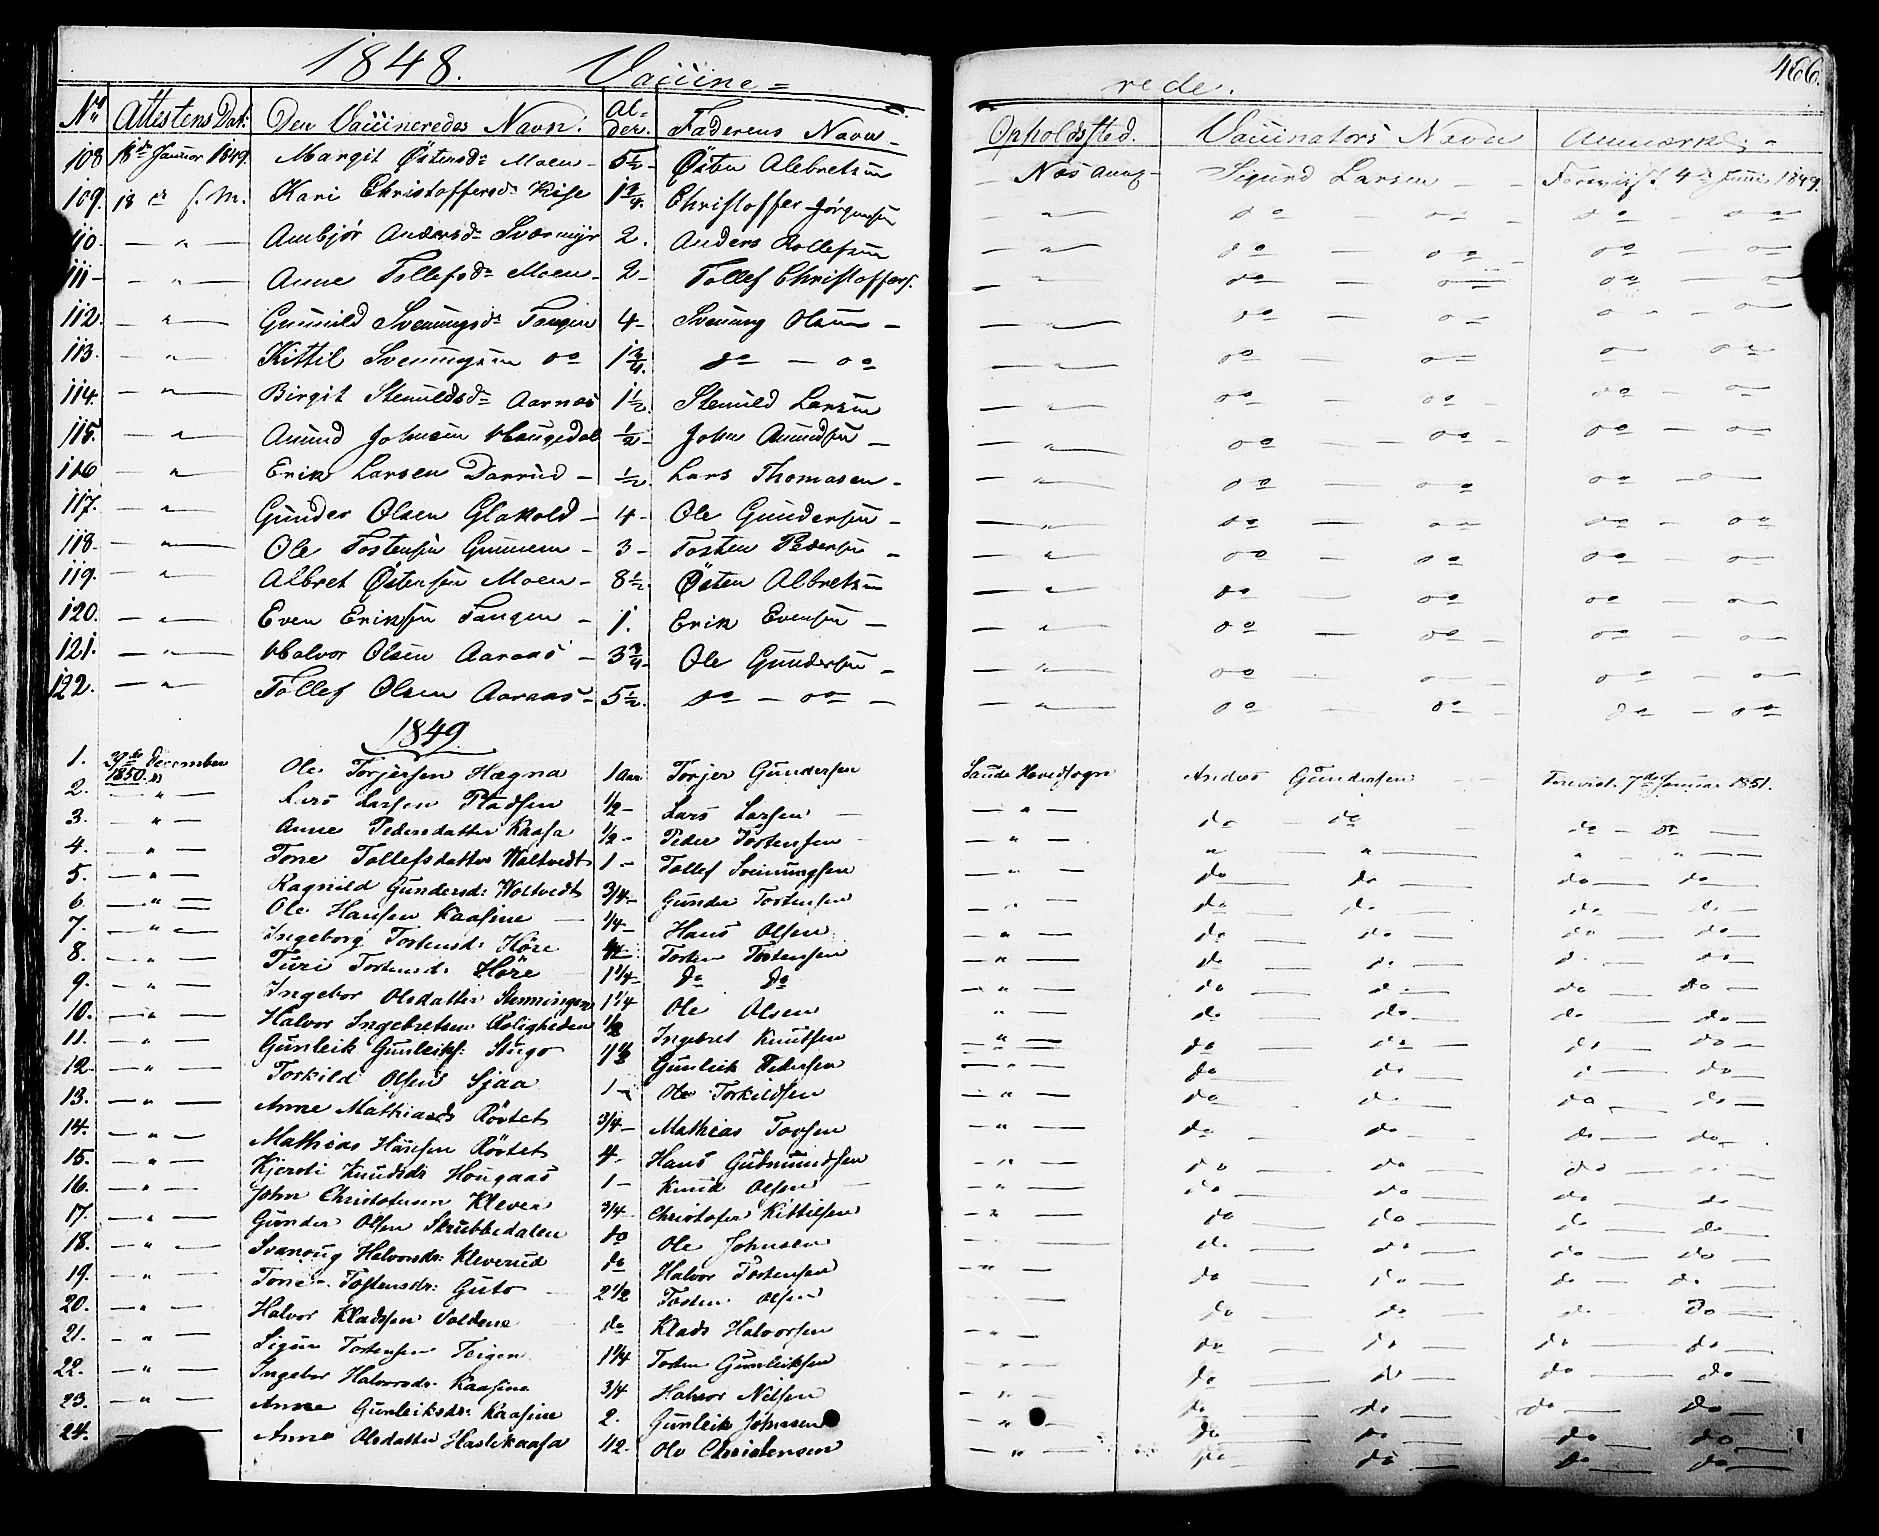 1848. Vaccine= rede. 466.
No Attestens Dat: Den Vaccineredes Navn. Al-der. Faderens Navn Opholdssted. Vaccinators Navn Anmærk:
108 18de Januar 1849. Margit Østensdr Moen 5½ Østen Albretsen Næs Annex Sigurd Larsen Foreviist 4de Juni 1849.
109. 18 d. s. M. Kari Christoffersdr Kise 1¾. Christoffer Jørgensen — " — do — do do — do
110 — " — Ambjør Andersdr Svasmyr 2. Anders Tollefsen — " — do — do do — do
111 — " — Anne Tollefsdr Moen 2 Tollef Christoffers. — " — do — do do — do
112. — " — Gunnild Svenungsdr Tangen 4 Svenung Olsen — " — do — do do — do
113. — " — Kittil Svenungsen do 1¾. do — do — " — do — do do — do
114. — " — Birgit Stenuldsdr Aarnæs 1½. Stenuld Larsen — " — do — do do — do
115. — " — Amund Johnsen Haugedal ½ John Amundsen — " — do — do do — do
116 — " — Erik Larsen Darrud ½. Lars Thomasen — " — do — do do — do
117. — " — Gunder Olsen Glakold 4 Ole Gundersen — " — do — do do — do
118. — " — Ole Tostensen Gunnem 3 Tosten Pedersen — " — do — do do — do
119. — " — Albret Østensen Moen 8½. Østen Albretsen — " — do — do do — do
120. — " — Even Eriksen Tangen 1. Erik Evensen — " — do — do do — do
121. — " — Halvor Olsen Aaraas 3¾ Ole Gundersen — " — do — do do — do
122. — " — Tollef Olsen Aaraas 5½. do — do — " — do — do do — do
1849
1. December 1850. Ole Torjersen Hægna 1 Aar Torjer Gundersen Saude Hovedsogn Anders Gundersen Forevist 7de Januar 1851.
2. — " — Lars Larsen Pladsen ½ Lars Larsen — " — do — do do — do
3. — " — Anne Pedersdatter Kaasa ½ Peder Tostensen — " — " " " "
4. — " — Tone Tollefsdatter Woltvedt 1 Tollef Svenungsen — " — do — do do — do
5. — " — Ragnild Gundersd: Woltvedt 3/4 Gunder Tostensen — " — do — do do — do
6. — " — Ole Hansen Kaasine 1/4 Hans Olsen — " — do — do do — do
7. — " — Ingeborg Tostensd: Höre Tosten Tostensen — " — do — do do — do
8. — " — Turi Tostensd: Höre 1 1/4 do do — " — do — do do — do
9. — " — Ingebor Olsdatter Stenningen 1 1/4 Ole Olsen — " — do — do do — do
10. — " — Halvor Ingebretsen Roligheden 1/2 Ingebret Knutsen — " — do — do do — do
11. — " — Gunleik Gunleiks: Stugo 1 1/2 Gunleik Pedersen — " — do — do do — do
12 — " — Torkild Olsen Sjaa 1 Ole Torkildsen do — do do — do
13. — " — Anne Mathiasd: Röstet 3/4 Mathias Tovsen — " — do — do do — do
14. — " — Mathias Hansen Röstet 4 Hans Gudmundsen — " — do — do do — do
15. — " — Kjersti Knudsdr Hougaas 1 Knud Olsen — " — do — do do — do
16. — " — John Christofersen Kleven 3/4 Christofer Kittilsen — " — do — do do — do
17. — " — Gunder Olsen Skrubbedalen do Ole Johnsen do — do do — do
18. — " — Svanoug Halvorsdr: Kleverud do Halvor Tostensen — " — do — do do — do
19. — " — Tone Tostensdr: Guto 2 1/2 Tosten Olsen — " — do — do do — do
20. — " — Halvor Kladssen Voldene do Klads Halvorsen do — do do — do
21. — " — Sigur Tostensen Teigen 1 1/4 Tosten Gunleiksen — " — do — do do — do
22. — " — Ingebor Halvorsdr: Kaasine 3/4 Halvor Nilsen — " — do — do do — do
23. — " — Anne Gunleiksdr: Kaasine 2. Gunleik Johnsen — " — do — do do — do
24. — " — Anne Olsdatter Haslekaasa 1/2 Ole Christensen — " — do — do do — do